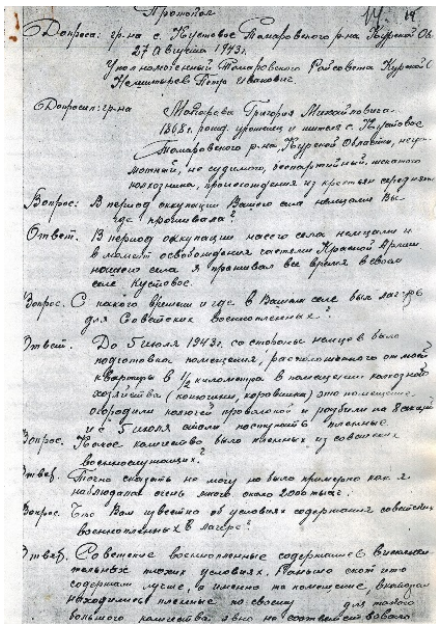 Протокол
14 14
Допроса: гр-на с. Кустовое Томаровского р-на Курской Об.
27 Августа 1943 г.
Уполномоченный Томаровского Райсовета Курской О
Петр Иванович
Допросил: гр-на Григория Михайловича
1868 г. рожд. уроженец и житель с. Кустовое
Томаровского р-на Курской Области,
не судимого, беспартийный,
колхозника, происхождения из крестьян середняк
Вопрос: В период оккупации Вашего села немцами Вы
где проживали?
Ответ. В период оккупации нашего села немцами и
в момент освобождения частями Красной Армии
нашего села я проживал все время в своем
селе Кустовое.
Вопрос. С какого времени и где в Вашем селе был лагерь
для Советских военнопленных?
Ответ. До 5 июля 1943 г. со стороны немцев было
подготовка помещения, расположенного от моей
квартиры в 1/2 километра в помещении колхозного
хозяйства (конюшни, коровники) это помещение
огородили колючей проволокой и разбили на 8 секций
и с 5 июля стали поступать пленные
Вопрос. Какое количество было пленных из советских
военнослужащих?
Ответ. Точно сказать не могу но было примерно как я
наблюдал очень много около
Вопрос. Что Вам известно об условиях содержания советских
военнопленных в лагере?
Ответ. Советские военнопленные содержание в
тяжких условиях. скот
содержали лучше, а именно то помещение, в котором
находились пленные по своему для такого
большого количества явно не соответствовало